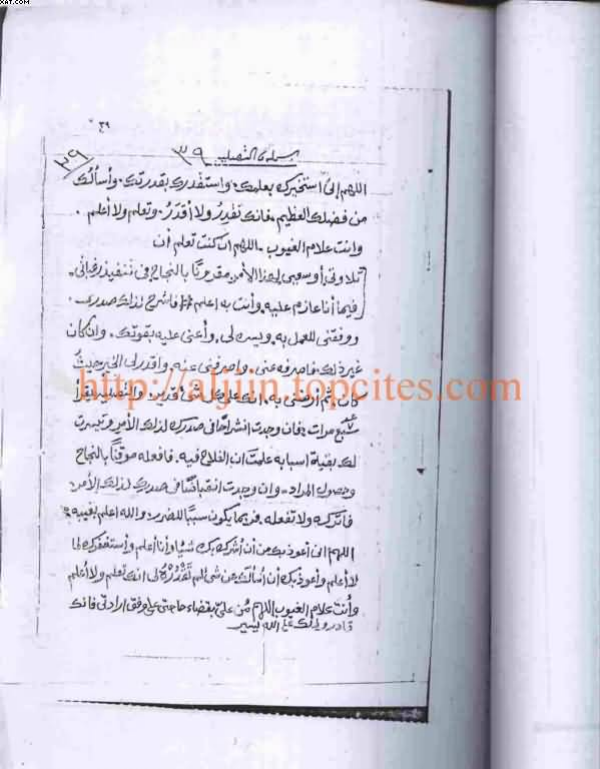 XAT.COM
٣٩
٣٩
٣٩
اللهم إنى استخيرك بعلمك. واستقدرك بقدرتك. وأسألك
من فضلك العظيم. فانك تقدر ولا أقدر. وتعلم ولا أعلم.
وانت علام الغيوب. اللهم ان كنت تعلم أن
تلاوتى أو سعيى لهذا الأمر مقدر لنا بالنجاح فى تنفيذ
فيما أنا عازم عليه. وأنت به اعلم فاشرح لذلك صدرى.
ووفقنى للعمل به. ويسره لى. وأعنى عليه بقوتك. وان كان
غير ذلك. فاصرفه عنى. واصرفنى عنه. واقدر لى الخير حيث
http://aljiin.topcites.com
كان. ثم أرضنى به. انك على كل قدير.
سبع مرات. فان وجدت انشراحا فى صدرك لذلك الأمر وتيسرت
لك بقية اسبابه علمت ان الفلاح فيه. فافعله موقناً بالنجاح
وحصول المراد. وان وجدت انقباضا فى صدرك لذلك الأمر
فاتركه ولا تفعله. فربما يكون سببا للضرر. والله اعلم بغيبه
اللهم انى أعوذ بك من أن أشرك بك شيئا وأنا أعلم وأستغفرك لما
لا أعلم وأعوذ بك أن أسألك عن شئ لم تقدره لى انك تعلم ولا أعلم
وأنت علام الغيوب اللهم مُن علىّ بقضاء حاجتى على وفق ارادتى فانك
قادر وذلك على الله يسير